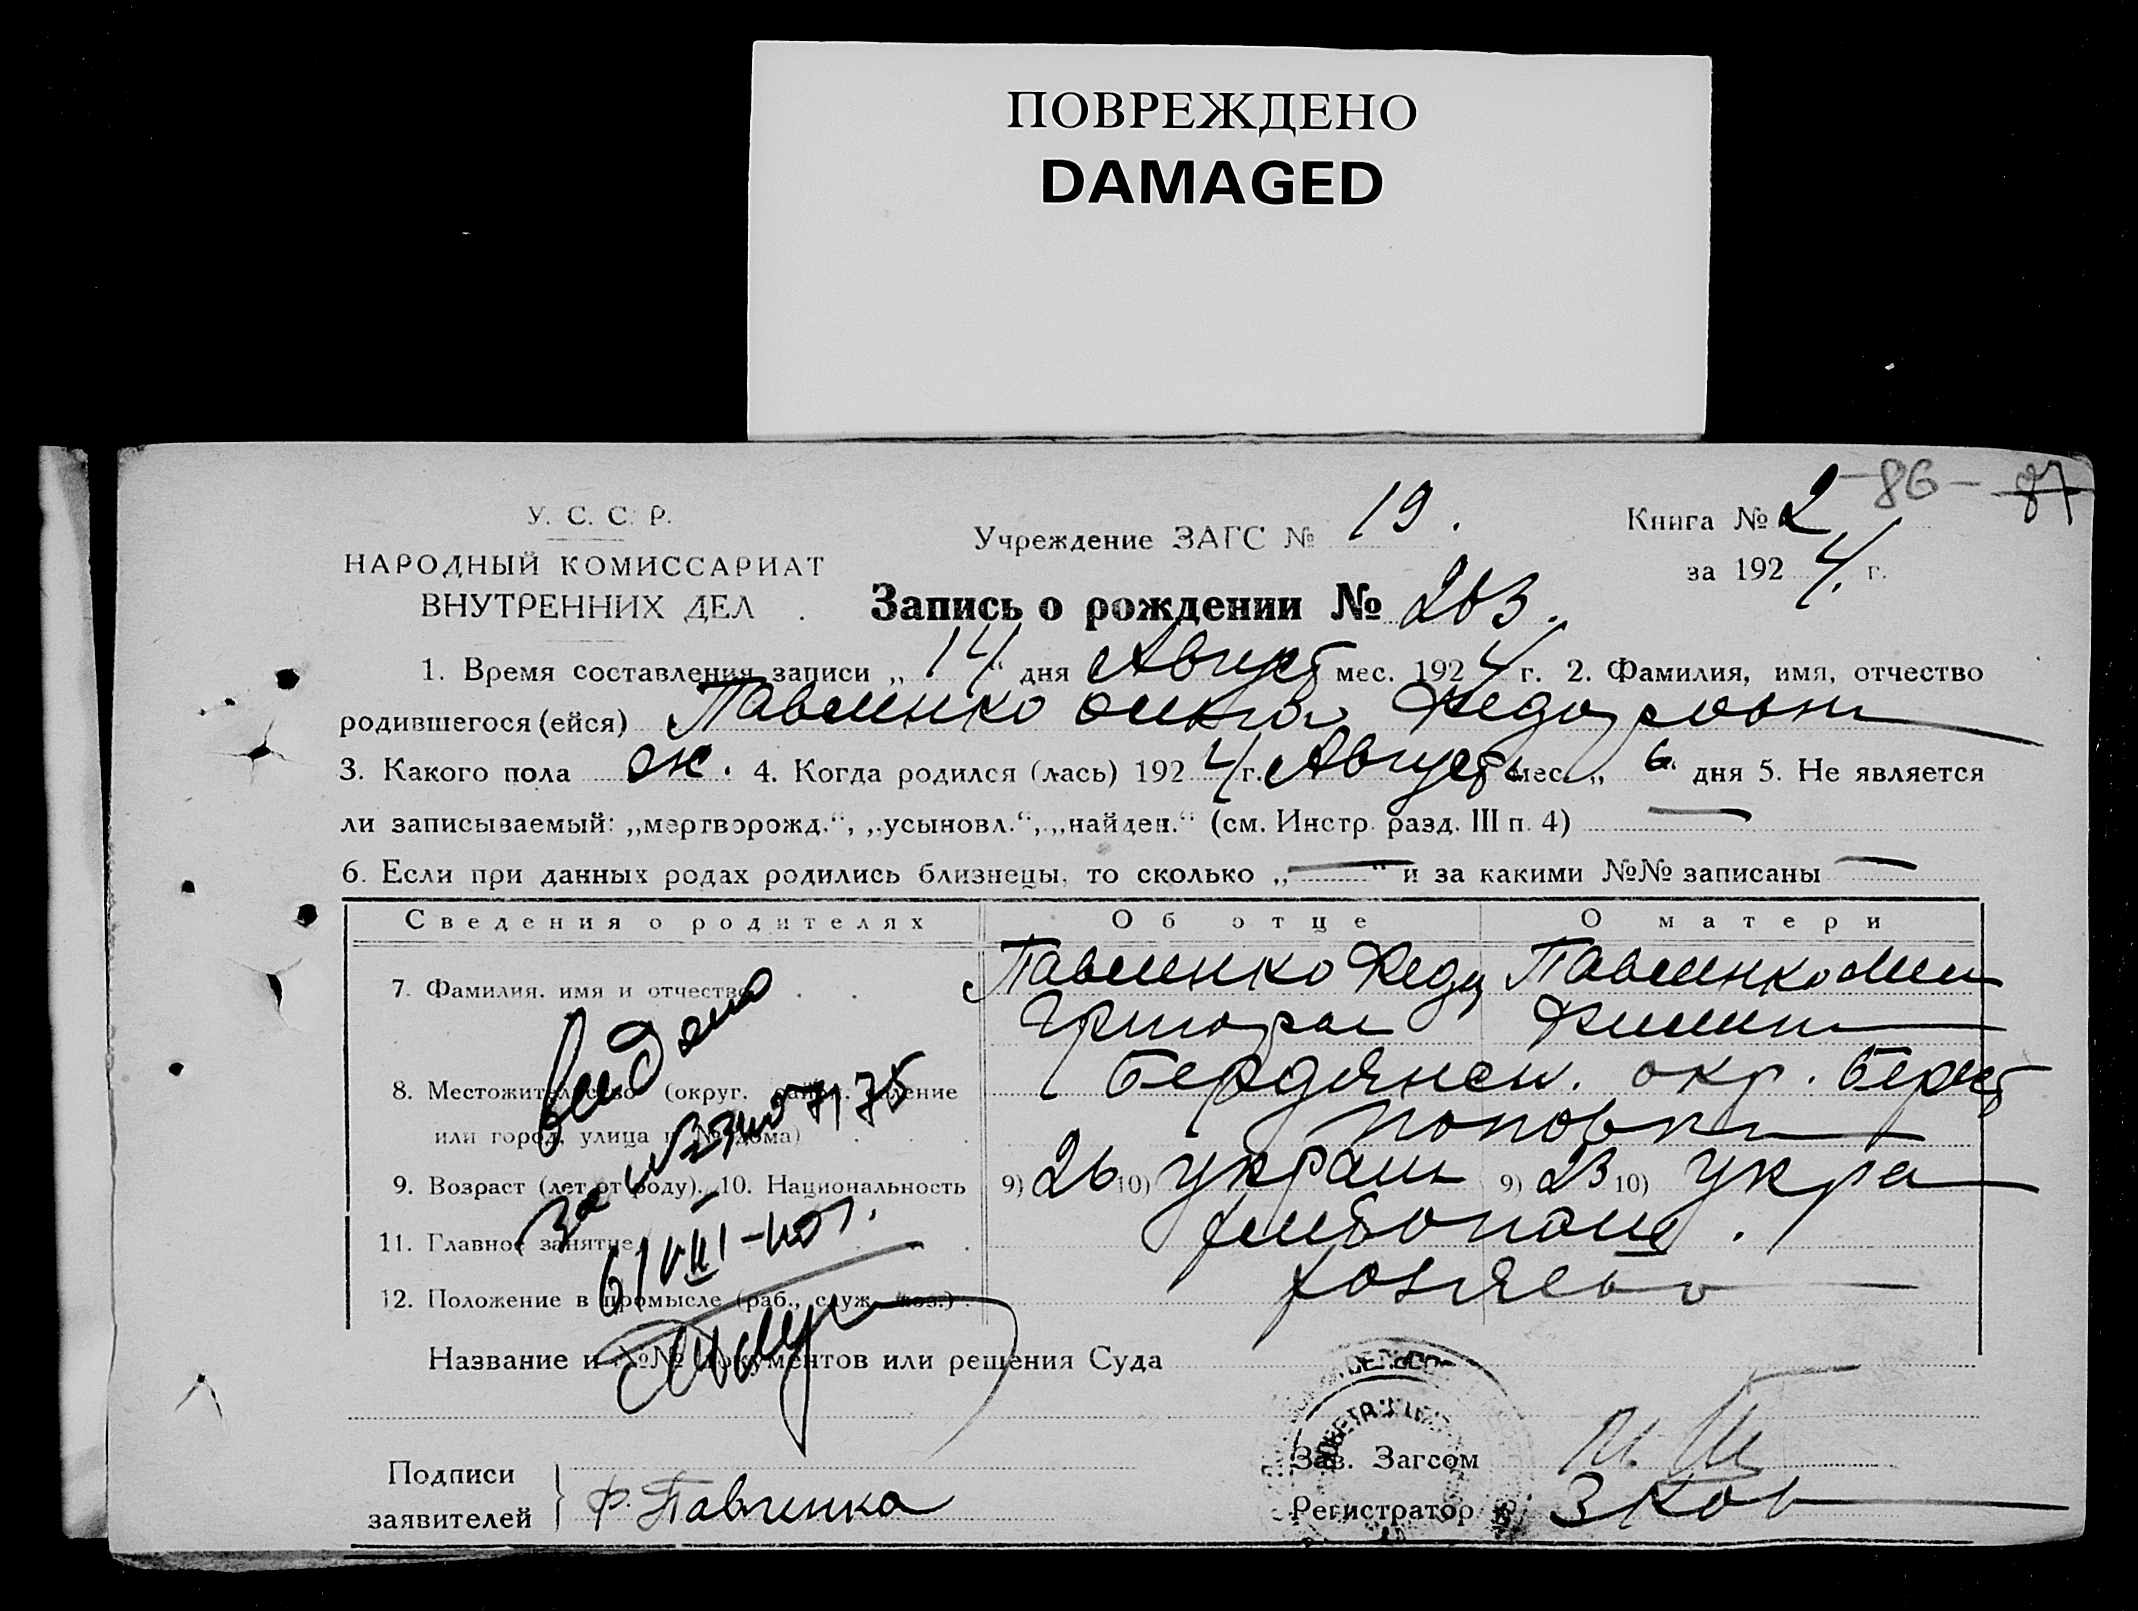 ПОВРЕЖДЕНО
DAMAGED
-86- 87
У. С. С. Р.
НАРОДНЫЙ КОМИССАРИАТ
ВНУТРЕННИХ ДЕЛ
Учреждение ЗАГС № 19.
Книга № 2
за 1924 г.
Запись о рождении № 263.
1. Время составления записи „14“ дня Август мес. 1924 г. 2. Фамилия, имя, отчество
родившегося (ейся) Павленко
3. Какого пола ж. 4. Когда родился (лась) 1924 г. Август мес. „6“ дня 5. Не является
ли записываемый: „мертворожд.“, „усыновл.“, „найден.“ (см. Инстр. разд. III п. 4) —
6. Если при данных родах родились близнецы, то сколько „—“ и за какими №№ записаны —
Сведения о родителях Об отце О матери
7. Фамилия, имя и отчество . . Павленко Федор Павленко
Григоров
8. Местожительство (округ, район, селение Бердянск. окр. Берест
или город, улица и № дома) . . Поповка
9. Возраст (лет от роду). 10. Национальность 9) 26 10) украин 9) 23 10) укра
11. Главное занятие хлебопаш.
12. Положение в промысле (раб., служ., хоз.) . хозяево
выдано
Название и №№ документов или решения Суда
Подписи
заявителей Ф. Павленко
Зав. Загсом
Регистратор